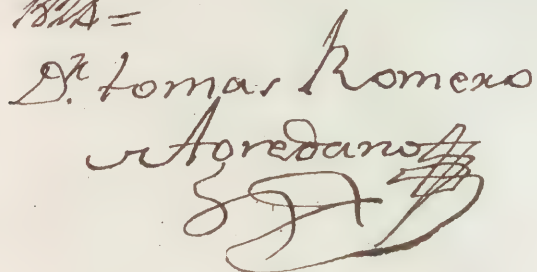 1824=
Dr. tomas Romero
Agredano